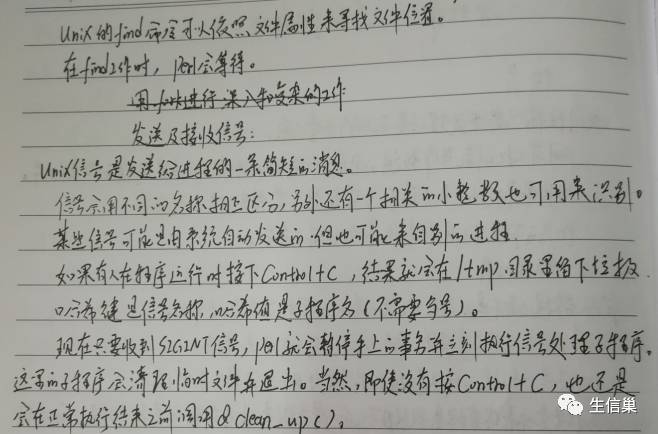 Unix的find命令可以依照文件属性来寻找文件位置。
在find工作时，perl会等待。
用fork进行深入和复杂的工作
发送及接收信号：
Unix信号是发送给进程的一条简短的消息。
信号会用不同的名称相互区分，另外还有一个相关的小整数也可用来识别。
某些信号可能是由系统自动发送的，但也可能来自别的进程
如果有人在程序运行时按下Control+C，结果就会在/tmp目录里留下垃圾
哈希键是信号名称，哈希值是子程序名（不需要与号）。
现在只要收到SIGINT信号，perl就会暂停手上的事务并立刻执行信号处理子程序。
这里的子程序会清理临时文件并退出。当然，即使没有按Control+C，也还是
会在正常执行结束之前调用&clean_up()。
生信巢